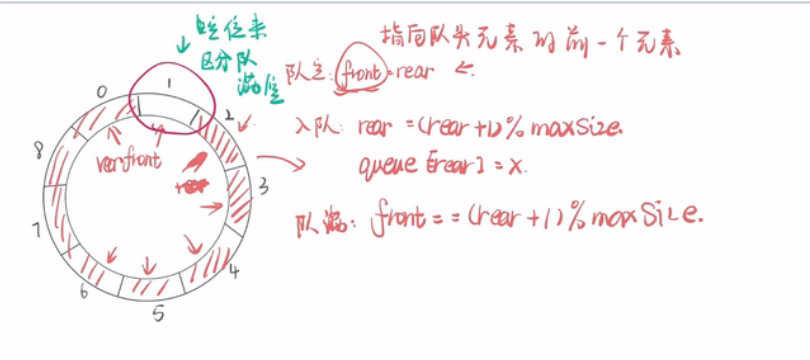 空位来
区分队
满空
指向队头元素的前一个元素
队空: front = rear ←
入队: rear = (rear+1)% maxSize.
queue [rear] = x.
队满: front == (rear+1)% maxSize.
0
1
2
8
rear front
3
7
6
5
4